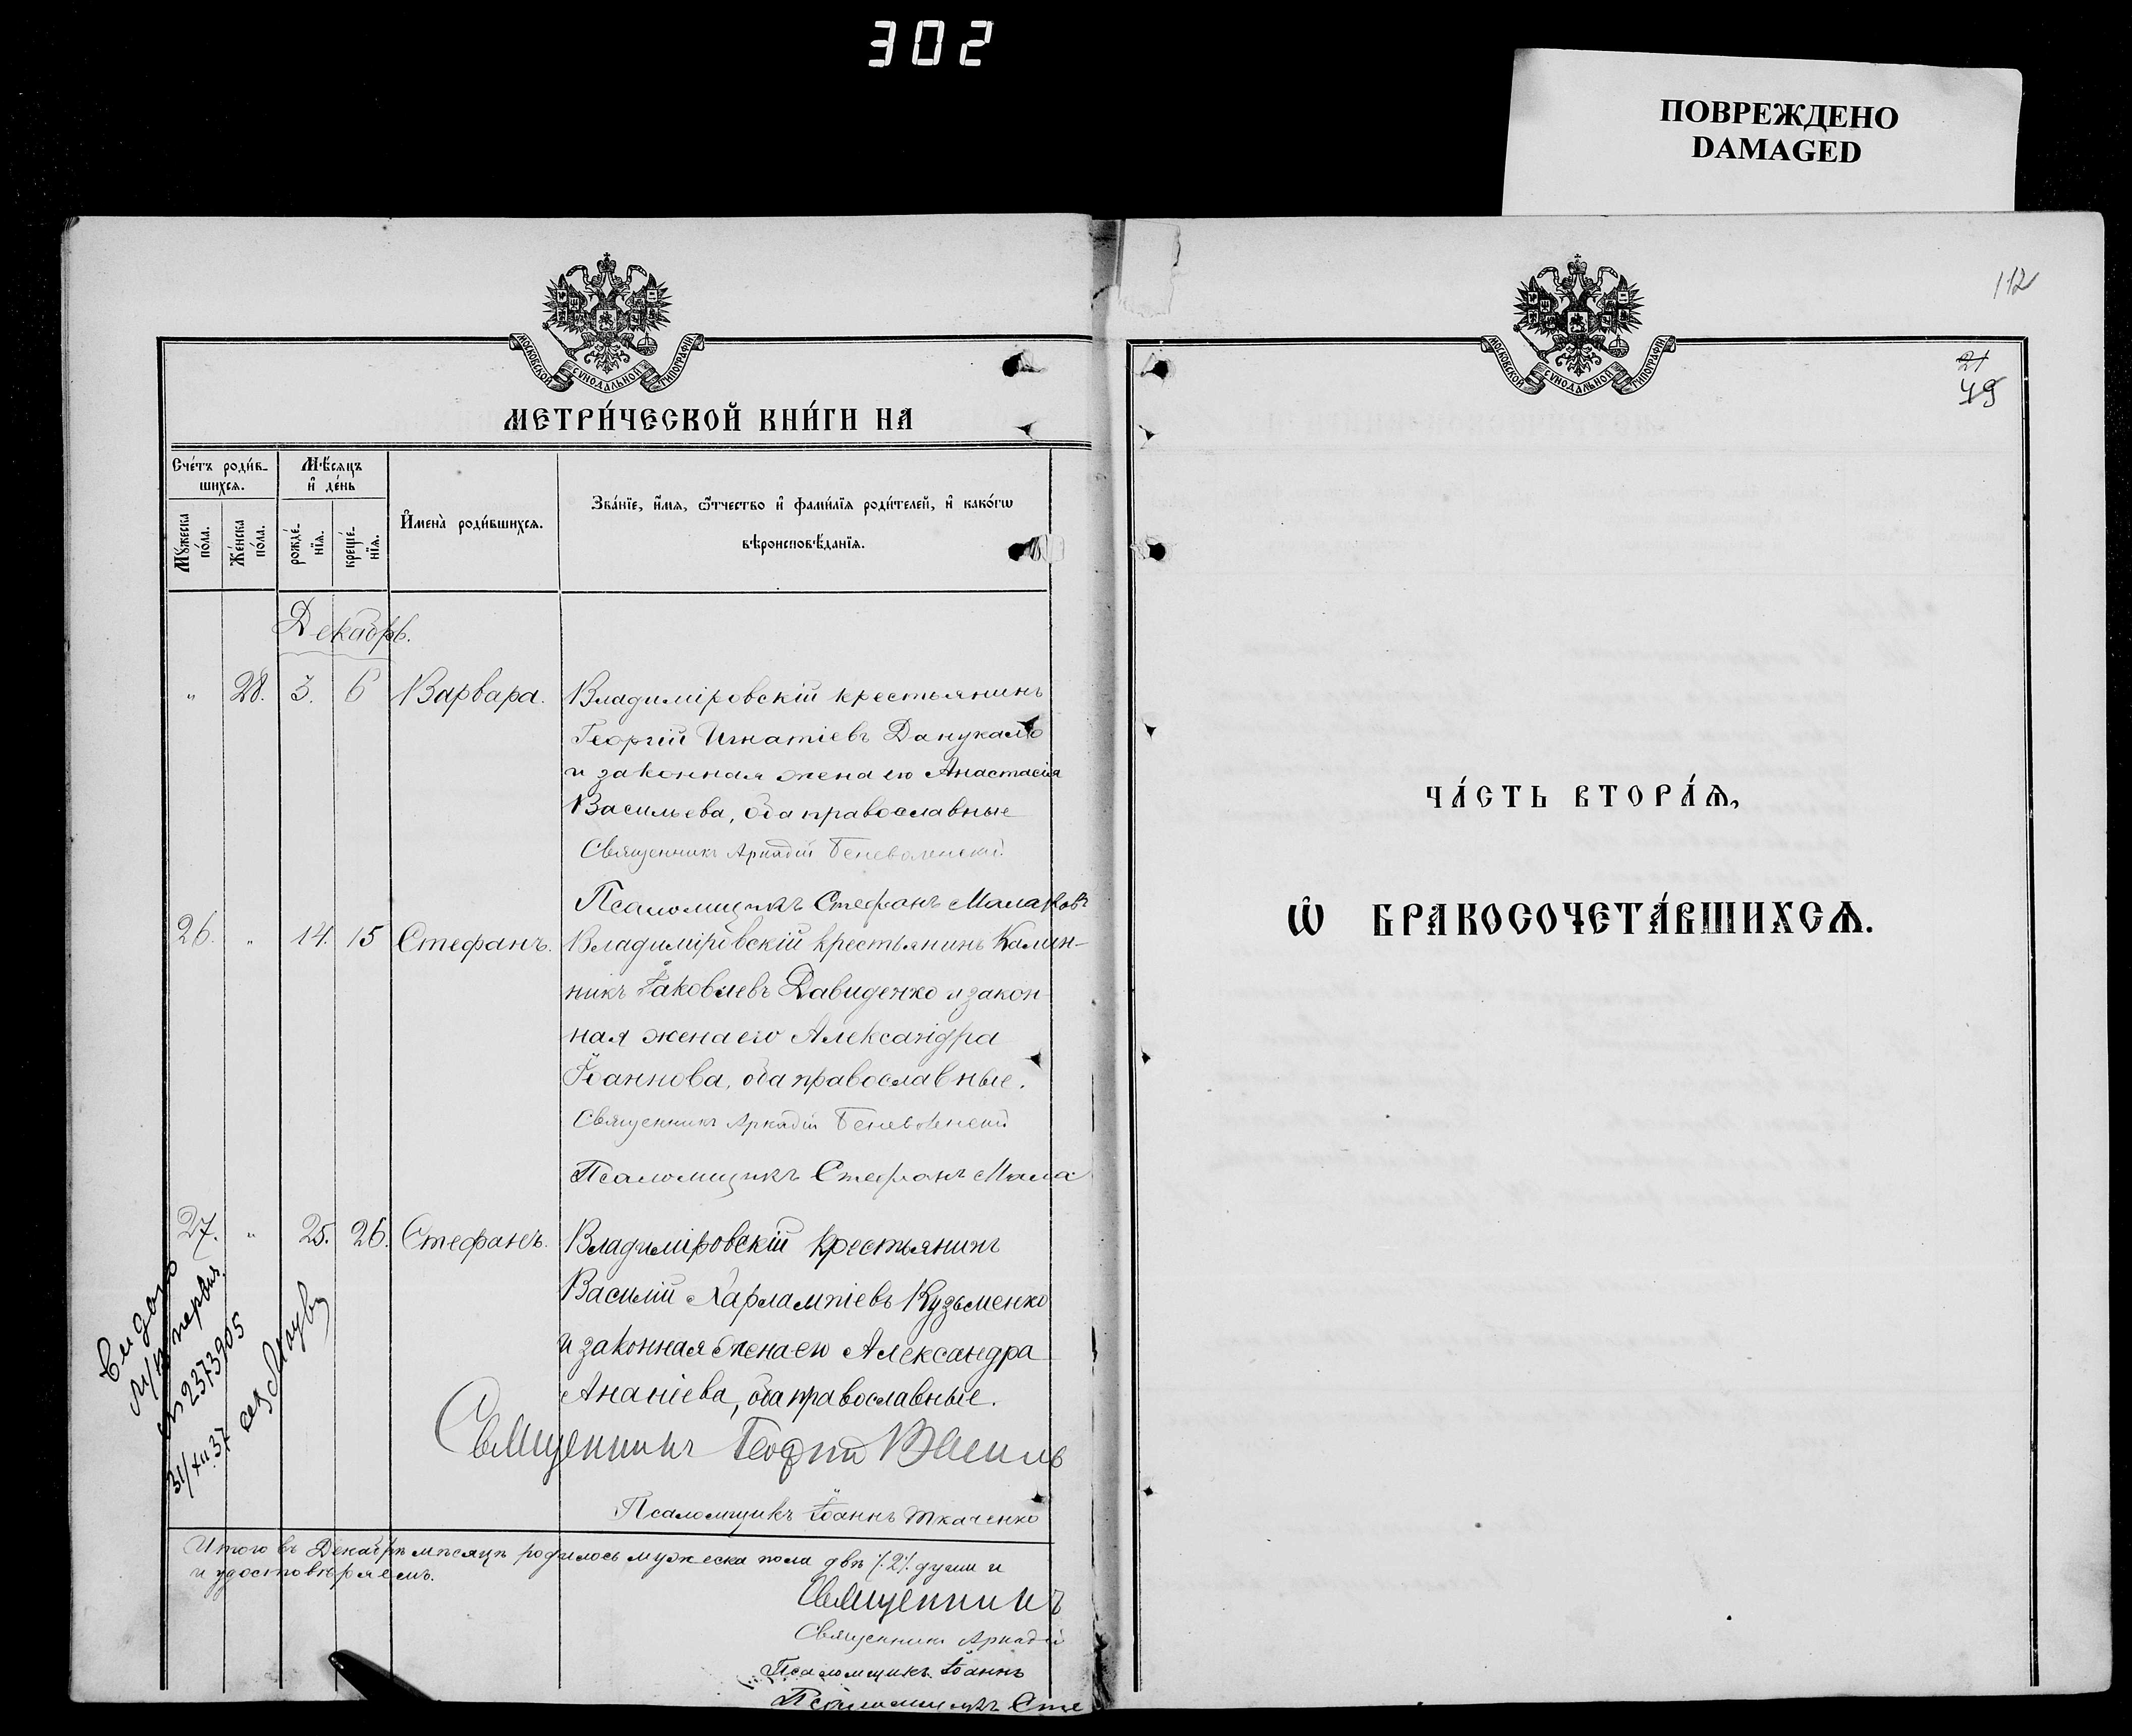 302
ПОВРЕЖДЕНО
DAMAGED
МОСКОВСКОЙ СУНОДАЛЬНОЙ ТИПОГРАФІИ
МЕТРИ́ЧЕСКОЙ КНИ́ГИ НА
Сче́тъ роди́в-
шихсѧ.
Мѣ́сяцъ
и҆ де́нь
И҆мена̀ роди́вшихсѧ.
Зва́нїе, и҆́мѧ, ѻ҆́тчество и҆ фами́лїѧ роди́телей, и҆ како́гѡ
вѣроисповѣ́данїѧ.
Мꙋ́жеска
по́ла.
Же́нска
по́ла.
рожде́-
нїѧ.
креще́-
нїѧ.
Декабрь.
" 28. 3. 6 Варвара. Владиміровскій крестьянинъ
Георгій Игнатіевъ Данукало
и законная жена его Анастасія
Васильева, оба православные
Священникъ Аркадій Беневоленскій.
Псаломщикъ Стефанъ Малаховъ
26. " 14. 15 Стефанъ. Владиміровскій крестьянинъ Калин-
никъ Іаковлевъ Давиденко и закон-
ная жена его Александра
Іоаннова, оба православные.
Священникъ Аркадій Беневоленскій
Псаломщикъ Стефанъ Мала
27. " 25. 26. Стефанъ. Владиміровскій крестьянинъ
Василій Харлампіевъ Кузьменко
и законная жена его Александра
Ананіева, оба православные.
Священникъ Георгій
Псаломщикъ Іоаннъ Ткаченко
2373905
31/XII.37
Итого въ Декабрѣ мѣсяцѣ родилось мужеска пола двѣ /.2/. души и
и удостовѣряемъ.
Священникъ
Священникъ Аркадій
Псаломщикъ Іоаннъ
Псаломщикъ Сте
112
МОСКОВСКОЙ СУНОДАЛЬНОЙ ТИПОГРАФІИ
21
49
ЧА́СТЬ ВТОРА́Ѧ,
Ѡ҆ БРАКОСОЧЕТА́ВШИХСѦ.